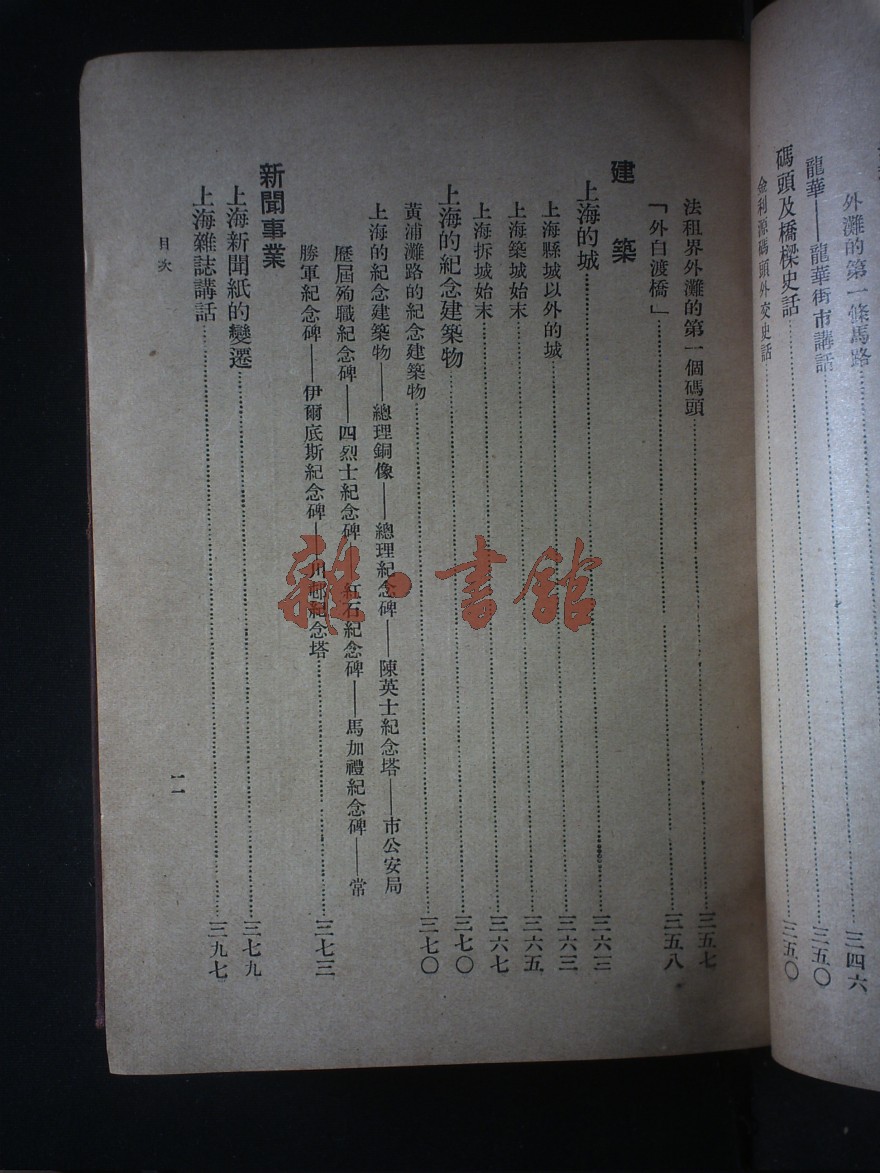 外灘的第一條馬路……三四六
龍華——龍華街市講話……三五〇
碼頭及橋樑史話……三五〇
金利源碼頭外交史話……
法租界外灘的第一個碼頭……三五七
「外白渡橋」……三五八
建築
上海的城……三六三
上海縣城以外的城……三六三
上海築城始末……三六五
上海拆城始末……三六七
上海的紀念建築物……三七〇
黃浦灘路的紀念建築物……三七〇
上海的紀念建築物——總理銅像——總理紀念碑——陳英士紀念塔——市公安局
歷屆殉職紀念碑——四烈士紀念碑——紅石紀念碑——馬加禮紀念碑——常
勝軍紀念碑——伊爾底斯紀念碑——川邨紀念塔……三七三
新聞事業
上海新聞紙的變遷……三七九
上海雜誌講話……三九七
目次
一一
雜·書館